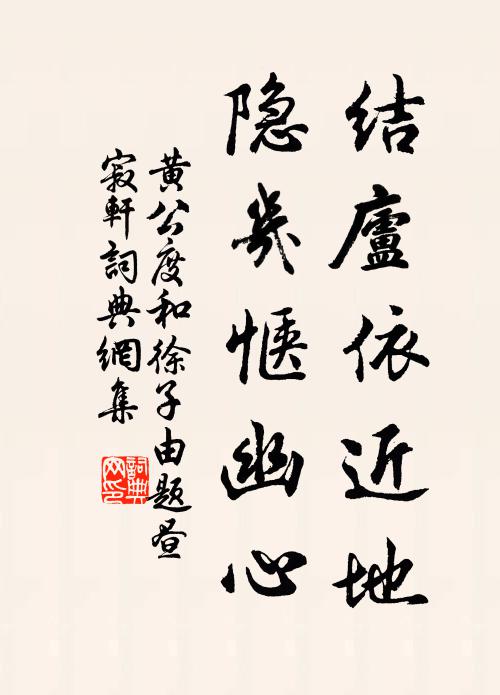 结廬依近地
隐几惬幽心
黄公度和徐子由题昼
寂軒詞典網集
詞典
网印